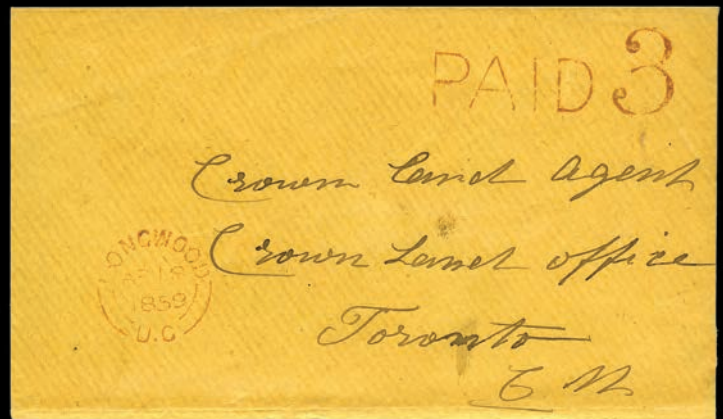 PAID 3
Crown Land Agent
Crown Land office
Toronto
C W
LONGWOOD
AP 18
1859
U.C